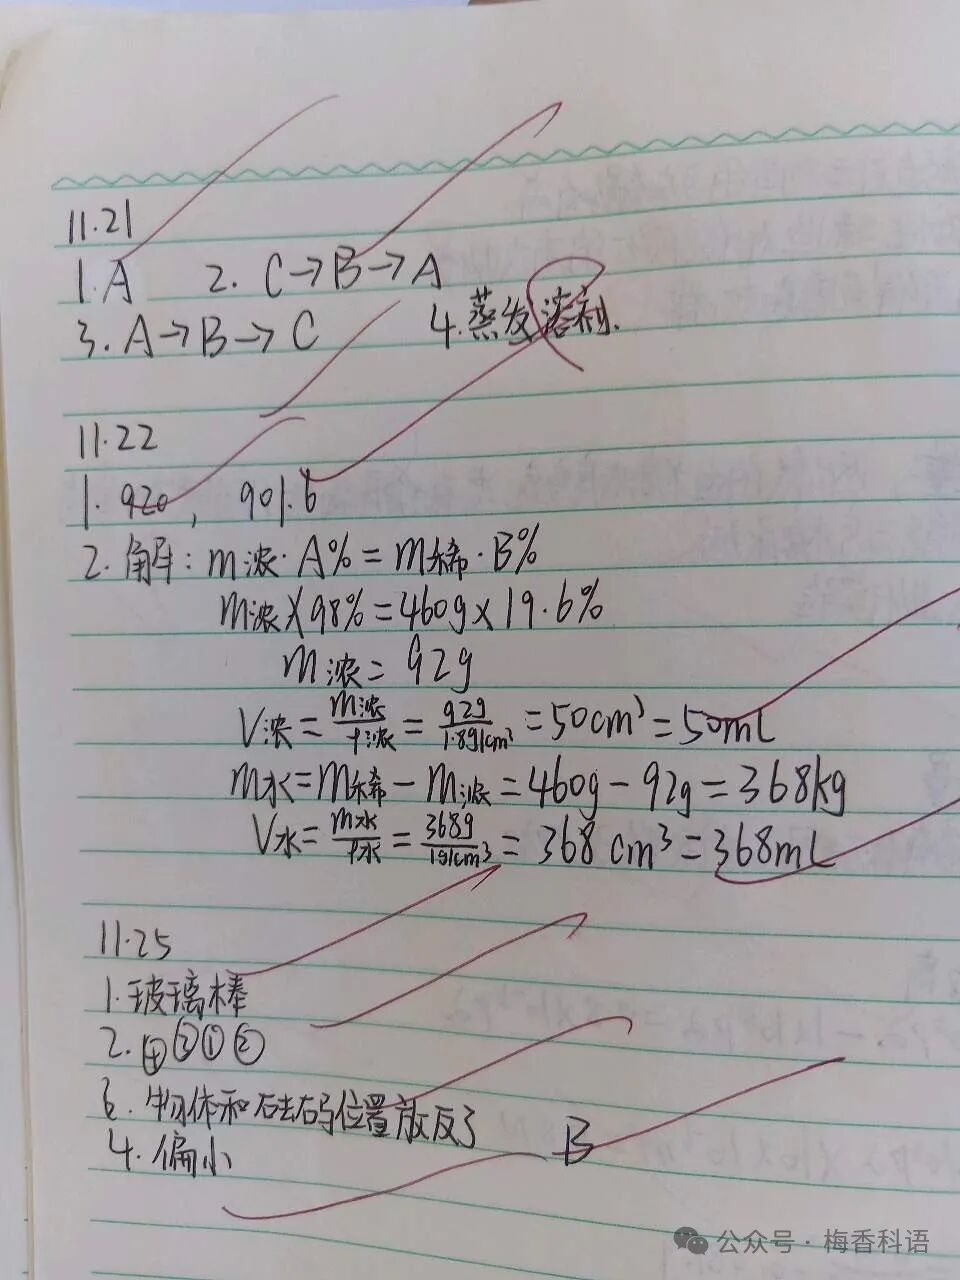 11.21
1.A 2. C→B→A
3. A→B→C 4.蒸发溶剂.
11.22
1. 920, 901.6
2.解: m浓·A%=m稀·B%
m浓×98%=460g×19.6%
m浓=92g
V浓=m浓/ρ浓=92g/1.8g/cm³=50cm³=50mL
m水=m稀-m浓=460g-92g=368kg
V水=m水/ρ水=368g/1g/cm³=368cm³=368mL
11.25
1.玻璃棒
2.④③①②
3.物体和砝码位置放反了
4.偏小 B
公众号·梅香科语